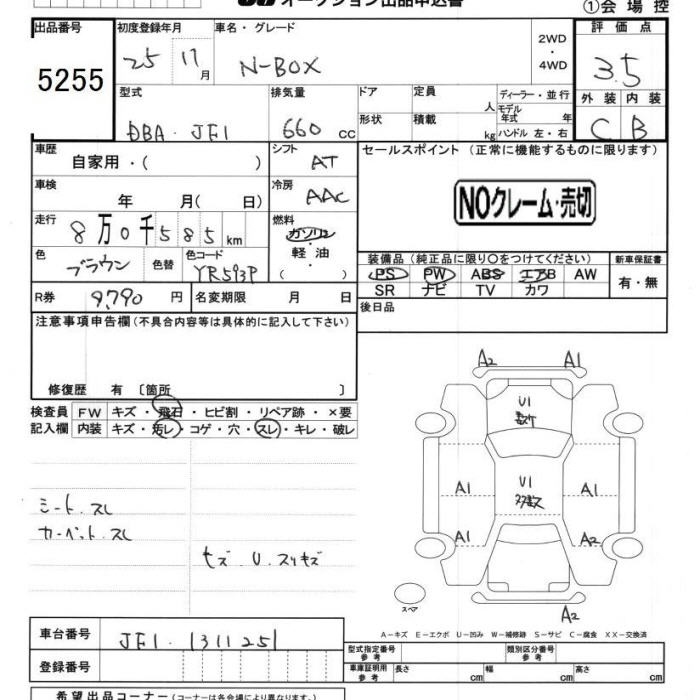 オークション出品申込書
①会場控
出品番号
5255
初度登録年月
25 11月
車名・グレード
N-BOX
2WD
・
4WD
評価点
3.5
外装 内装
C B
型式
DBA・JF1
排気量
660 cc
ドア
形状
定員
人
積載
kg
ディーラー・並行
モデル年式 年
ハンドル 左・右
車歴
自家用・( )
シフト
AT
セールスポイント(正常に機能するものに限ります)
NOクレーム・売切
車検
年 月( 日)
冷房
AAC
走行
8万0千585km
燃料
ガソリン
軽油
( )
色
ブラウン
色替
色コード
YR593P
装備品(純正品に限り〇をつけてください)
PS PW ABS エアB AW
SR ナビ TV カワ
新車保証書
有・無
R券 9,790円
名変期限 月 日
後日品
注意事項申告欄(不具合内容等は具体的に記入して下さい)
修復歴 有〔箇所 〕
検査員記入欄
FW キズ・飛石・ヒビ割・リペア跡・×要
内装 キズ・汚レ・コゲ・穴・スレ・キレ・破レ
シート.スレ
カーペット.スレ
キズ U.スリキズ
A2 A1
U1
U1
A1 A1
A1 A2
A2
スペア
A-キズ E-エクボ U-凹み W-補修跡 S-サビ C-腐食 XX-交換済
車台番号
JF1.1311251
登録番号
型式指定番号 参考
類別区分番号 参考
車庫証明用 参考
長さ cm 幅 cm 高さ cm
希望出品コーナー(コーナーは各会場により異なります)